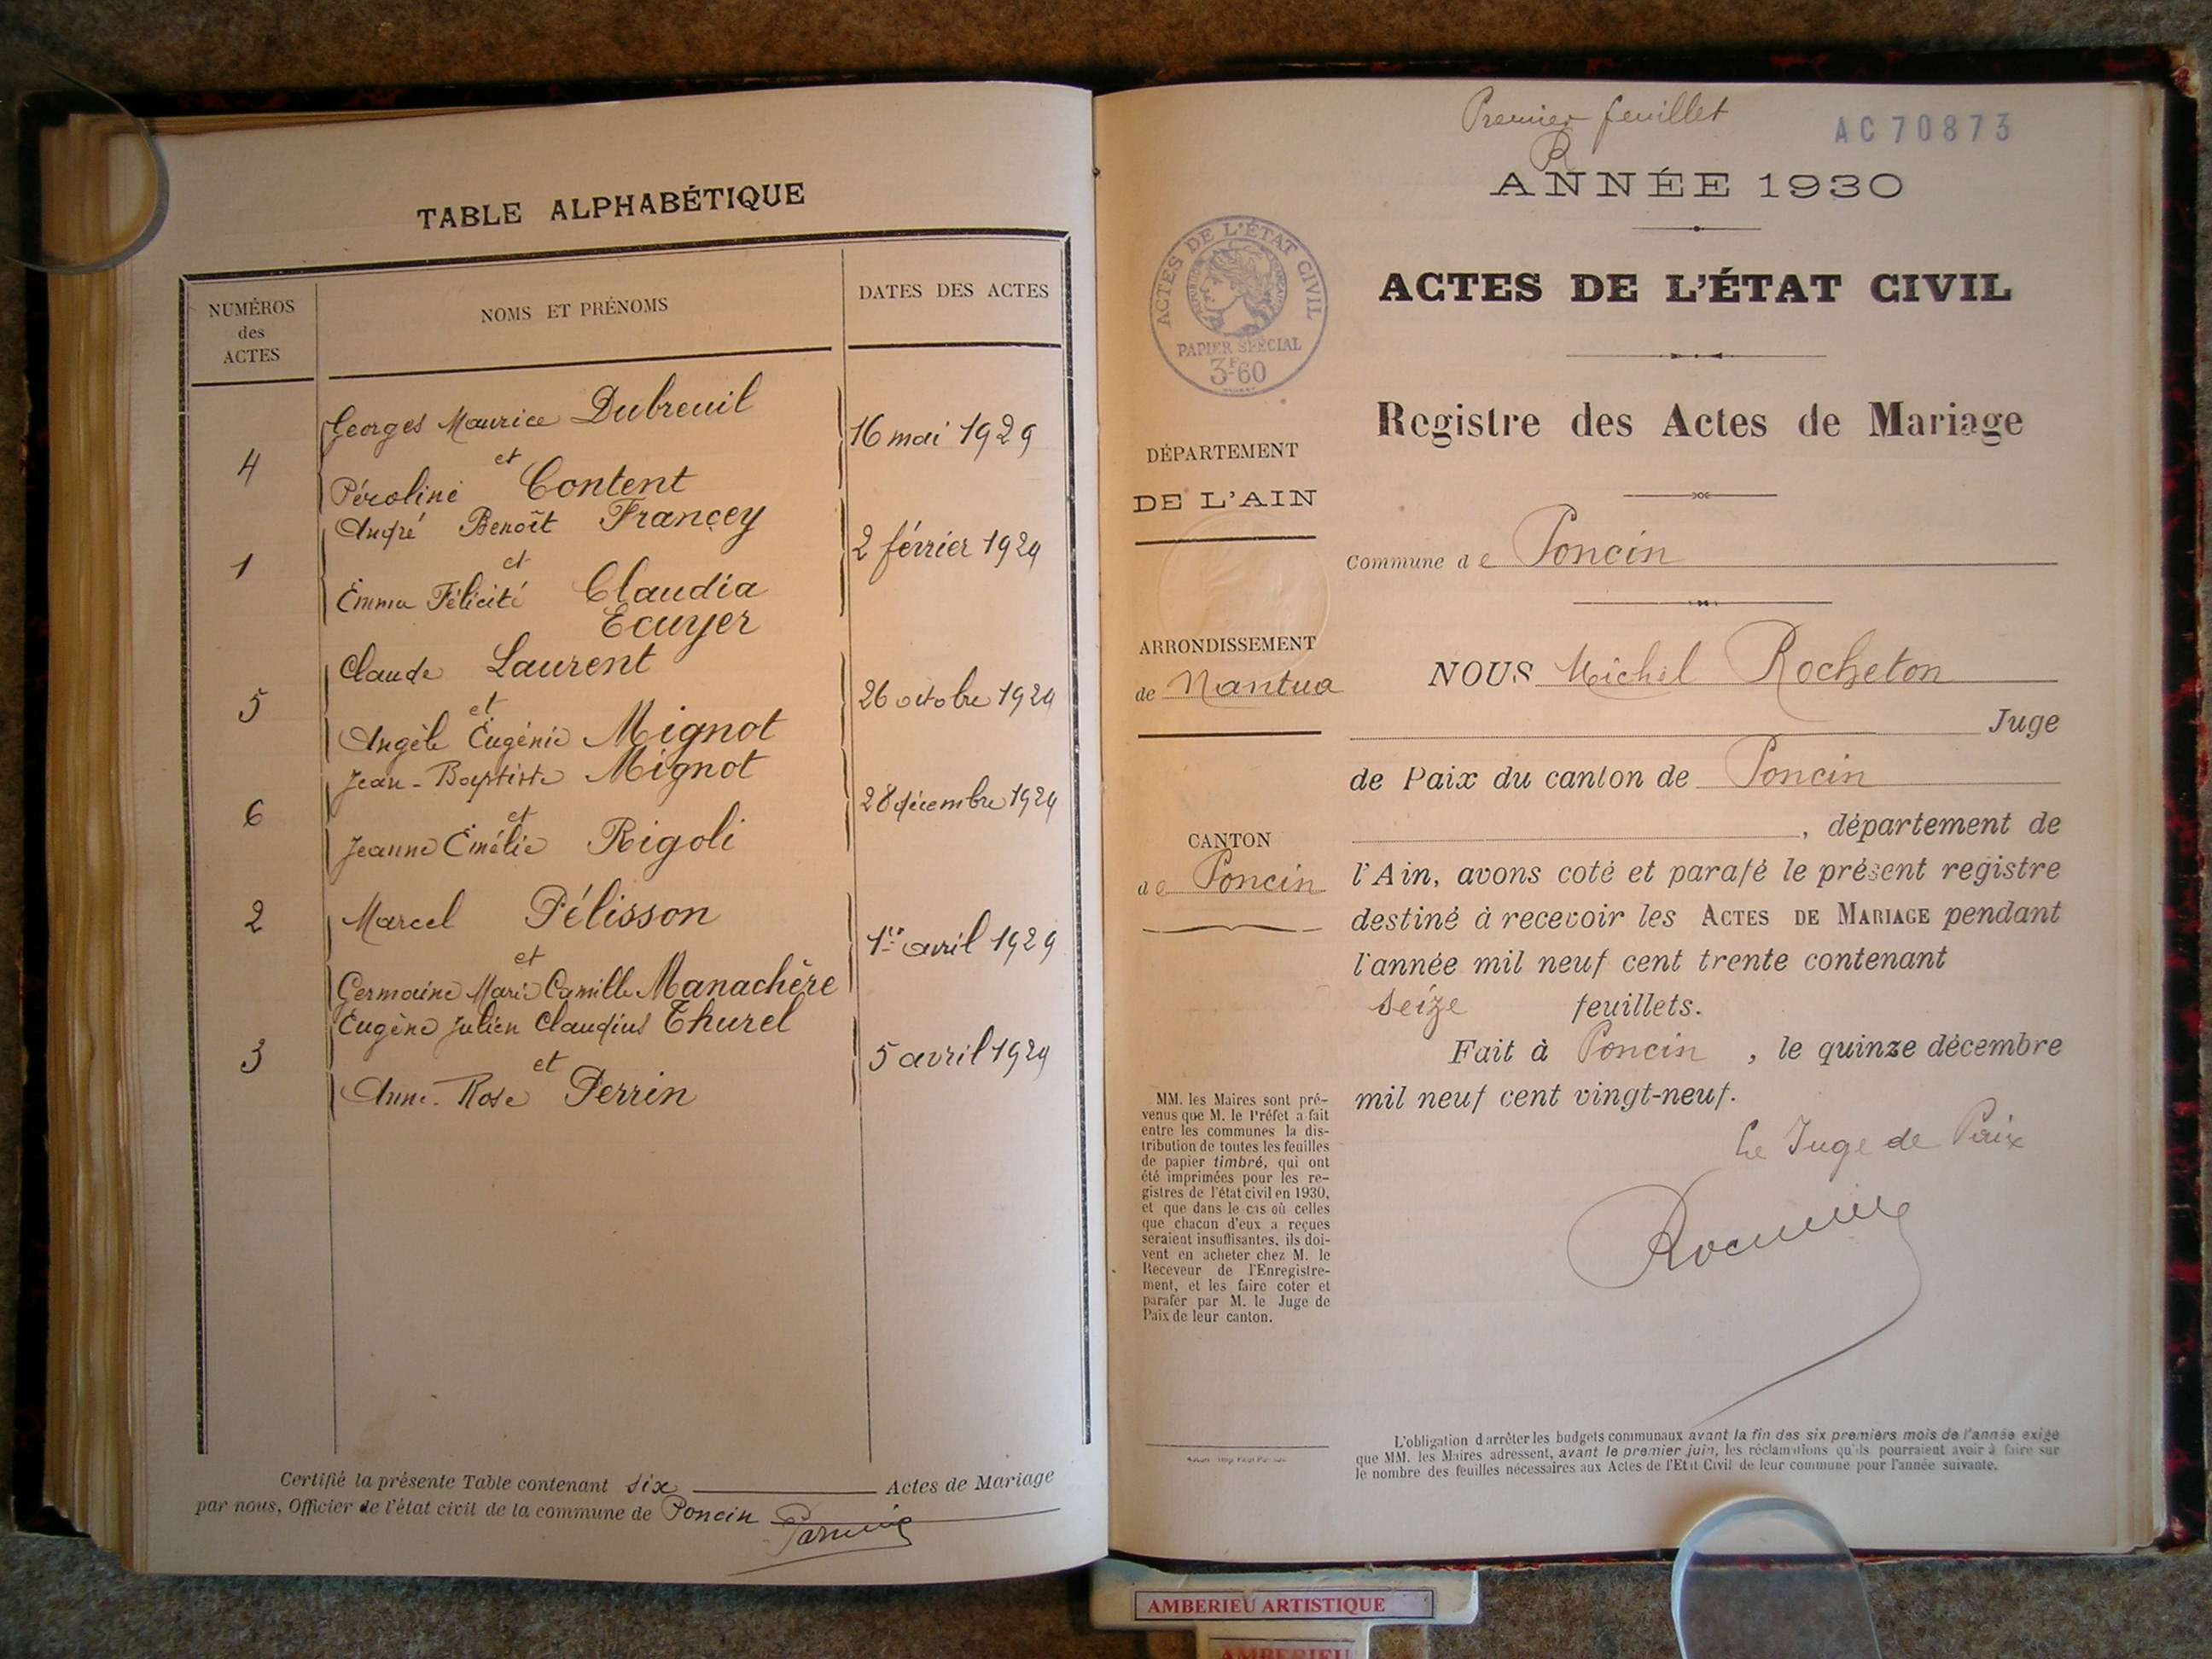 TABLE ALPHABÉTIQUE
NUMÉROS
des
ACTES
NOMS ET PRÉNOMS
DATES DES ACTES
Georges Maurice Dubreuil
4
et
16 mai 1929
Péroline Content
André Benoît Françey
1
et
2 février 1929
Emma Félicité Claudia
Ecuyer
Claude Laurent
5
et
26 octobre 1929
Angèle Eugénie Mignot
Jean-Baptiste Mignot
6
et
28 décembre 1929
Jeanne Emélie Rigoli
2
Marcel Pélisson
et
1er avril 1929
Germaine Marie Camille Manachère
Eugène Julien Claudius Thurel
3
et
5 avril 1929
Anne-Rose Perrin
Certifié la présente Table contenant six Actes de Mariage
par nous, Officier de l'état civil de la commune de Poncin
Premier feuillet
AC 70873
ANNÉE 1930
ACTES DE L'ÉTAT CIVIL
PAPIER SPÉCIAL
3F60
ACTES DE L'ÉTAT CIVIL
Registre des Actes de Mariage
DÉPARTEMENT
DE L'AIN
Commune de Poncin
ARRONDISSEMENT
de Nantua
NOUS Michel Rocheton
Juge
de Paix du canton de Poncin
, département de
CANTON
de Poncin
l'Ain, avons coté et parafé le présent registre
destiné à recevoir les ACTES DE MARIAGE pendant
l'année mil neuf cent trente contenant
seize feuillets.
Fait à Poncin, le quinze décembre
mil neuf cent vingt-neuf.
Le Juge de Paix
MM. les Maires sont pré-
venus que M. le Préfet a fait
entre les communes la dis-
tribution de toutes les feuilles
de papier timbré, qui ont
été imprimées pour les re-
gistres de l'état civil en 1930,
et que dans le cas où celles
que chacun d'eux a reçues
seraient insuffisantes, ils doi-
vent en acheter chez M. le
Receveur de l'Enregistre-
ment, et les faire coter et
parafer par M. le Juge de
Paix de leur canton.
L'obligation d'arrêter les budgets communaux avant la fin des six premiers mois de l'année exige
que MM. les Maires adressent, avant le premier juin, les réclamations qu'ils pourraient avoir à faire sur
le nombre des feuilles nécessaires aux Actes de l'Etat Civil de leur commune pour l'année suivante.
AMBERIEU ARTISTIQUE
AMBERIEU